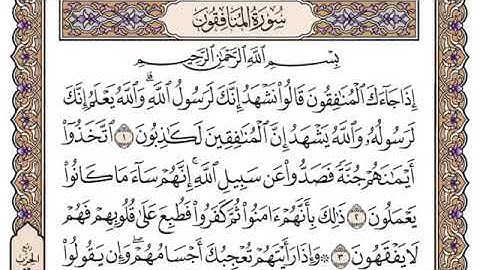 سُورَةُ المُنَافِقُونَ
بِسْمِ اللَّهِ الرَّحْمَٰنِ الرَّحِيمِ
إِذَا جَاءَكَ الْمُنَافِقُونَ قَالُوا نَشْهَدُ إِنَّكَ لَرَسُولُ اللَّهِ ۗ وَاللَّهُ يَعْلَمُ إِنَّكَ
لَرَسُولُهُ وَاللَّهُ يَشْهَدُ إِنَّ الْمُنَافِقِينَ لَكَاذِبُونَ ١ اتَّخَذُوا
أَيْمَانَهُمْ جُنَّةً فَصَدُّوا عَن سَبِيلِ اللَّهِ ۚ إِنَّهُمْ سَاءَ مَا كَانُوا
يَعْمَلُونَ ٢ ذَٰلِكَ بِأَنَّهُمْ آمَنُوا ثُمَّ كَفَرُوا فَطُبِعَ عَلَىٰ قُلُوبِهِمْ فَهُمْ
لَا يَفْقَهُونَ ٣ ۞ وَإِذَا رَأَيْتَهُمْ تُعْجِبُكَ أَجْسَامُهُمْ ۖ وَإِن يَقُولُوا
ربع
الحزب